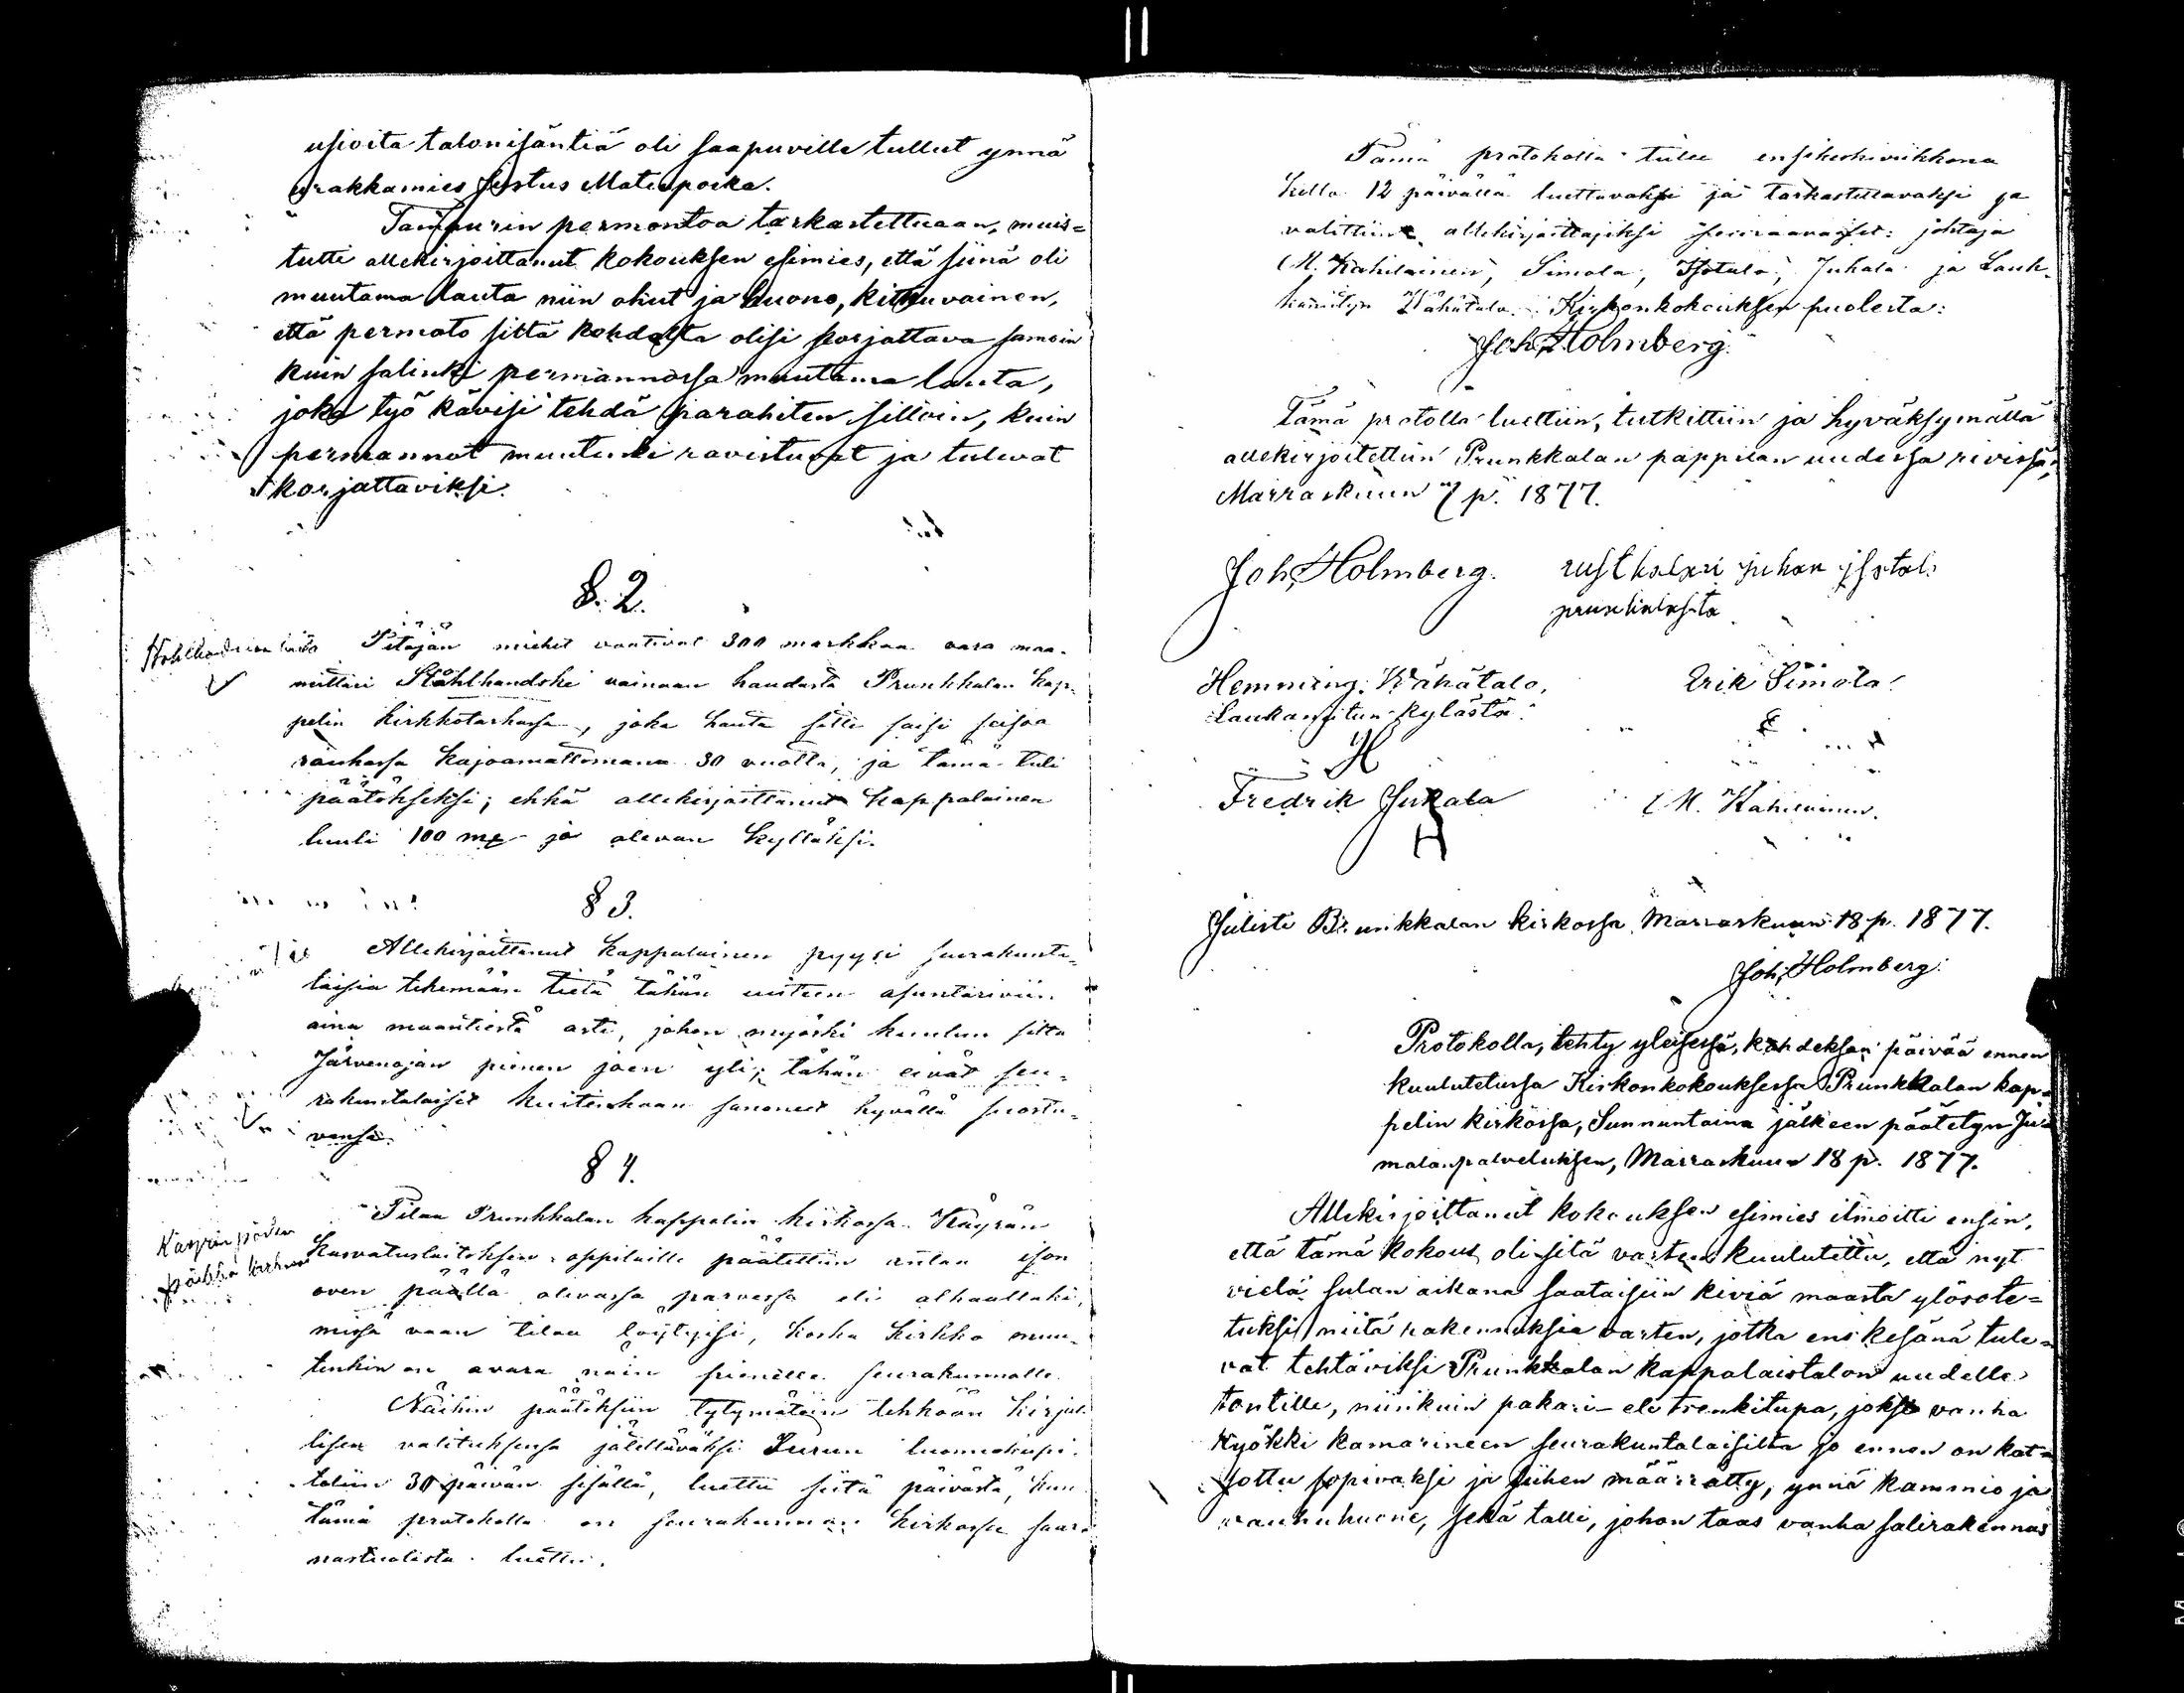 usioita talonisäntiä oli saapuville tullut ynnä
urakkamies Justus Matinpoika.
Tampurin permontoa tarkastettuaan, muis=
tutti allekirjoittanut kokouksen esimies, että siinä oli
muutama lauta niin ohut ja huono, kitkuvainen,
että permoto siltä kohdalta olisi korjattava samoin
kuin salinki permannossa muutama lauta,
joka työ kävisi tehdä parahiten silloin, kuin
permannot muutenki ravistuvat ja tulevat
korjattaviksi.
§. 2.
Pitäjän miehet vaativat 300 markkaa vara maa-
mittari Stålhandski vainaan haudasta Prunkkalan kap-
pelin kirkkotarhassa, joka hauta sitte saisi seisoa
rauhassa kajoamattomana 30 vuotta, ja tämä tuli
päätökseksi; ehkä allekirjoittanut kappalainen
luuli 100 mk jo olevan kylläksi.
§ 3.
Allekirjoittanut kappalainen pyysi seurakunta=
laisia tekemään tietä tähän uuteen asuntariviin
aina maantiestä asti, johon myöski kuuluu silta
Järvenojan pienen joen yli; tähän eivät seu=
rakuntalaiset kuitenkaan sanoneet hyvällä suostu=
vansa.
§ 4.
Käyrän
päikkä kirkossa
Tilaa Prunkkalan kappelin kirkossa Käyrän
kasvatuslaitoksen oppilaille päätettiin antaa ison
oven päällä olevassa parvessa eli alhaallaki,
missä vaan tilaa löytyisi, koska kirkko muu-
tenkin on avara näin pienelle seurakunnalle.
Näihin päätöksiin tytymätöin tehköön kirjal-
lisen valituksensa jätettäväksi Turun tuomiokapi-
teliin 30 päivän sisällä, luettu siitä päivästä, kun
tämä protokolla on seurakunnan kirkossa saar-
nastuolista luettu.
Tämä protokolla tulee ensikeskiviikkona
kello 12 päivällä luettavaksi ja tarkastettavaksi ja
valittiin allekirjoittajiksi seuraavaiset: johtaja
M. Kahilainen, Simola, Isotalo, Jukala ja Lauk-
kanitun Vähätalo. Kirkonkokouksen puolesta:
Joh. Holmberg.
Tämä protolla luettiin, tutkittiin ja hyväksymällä
allekirjoitettiin Prunkkalan pappilan uudessa rivissä,
Marraskuun 7 p. 1877.
Joh. Holmberg. rusthalari juhan isotal
prunkkalasta
Hemming Vähätalo, Erik Simola
Laukanitun kylästä.
H
Fredrik Jukala M. Kahilainen.
H
Julisti Brunkkalan kirkossa Marraskuun 18 p. 1877.
Joh. Holmberg.
Protokolla, tehty yleisessä, kahdeksan päivää ennen
kuulutetussa Kirkonkokouksessa Prunkkalan kap=
pelin kirkossa, Sunnuntaina jälkeen päätetyn Ju=
malanpalveluksen, Marraskuun 18 p. 1877.
Allekirjoittanut kokouksen esimies ilmoitti ensin,
että tämä kokous oli sitä varten kuulutettu, että nyt
vielä sulan aikana saataisiin kiviä maasta ylösote=
tuksi niitä rakennuksia varten, jotka ens kesänä tule=
vat tehtäviksi Prunkkalan Kappalaistalon uudelle
tontille, niinkuin pakari- eli trenkitupa, joksi vanha
Kyökki kamarineen seurakuntalaisilta jo ennen on kat=
sottu sopivaksi ja siihen määrätty, ynnä kammio ja
vaunuhuone, sekä talli, johon taas vanha salirakennus